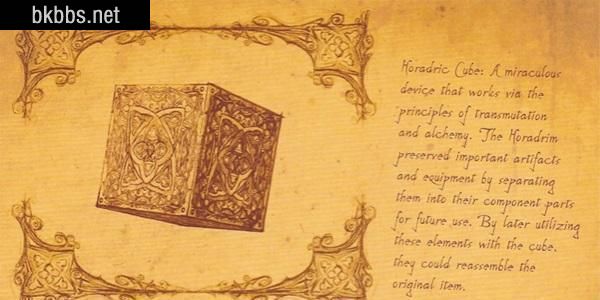 bkbbs.net
Horadric Cube: A miraculous
device that works via the
principles of transmutation
and alchemy. The Horadrim
preserved important artifacts
and equipment by separating
them into their component parts
for future use. By later utilizing
these elements with the cube,
they could reassemble the
original item.